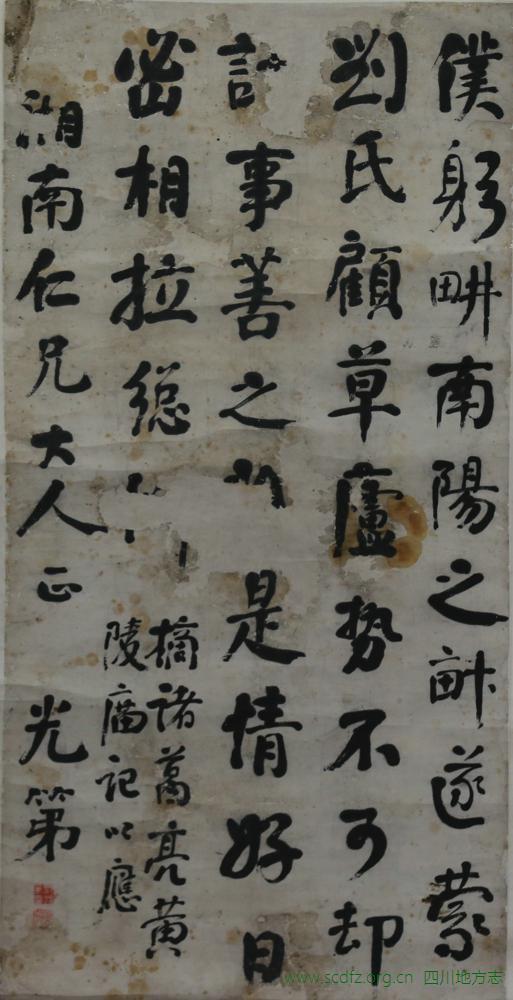 僕躬畊南陽之畝遂蒙
劉氏顧草廬勢不可却
計事善之是情好日
密相拉總
摘諸葛亮黃
陵廟記以應
南仁兄大人正
光第
www.scdfz.org.cn 四川地方志